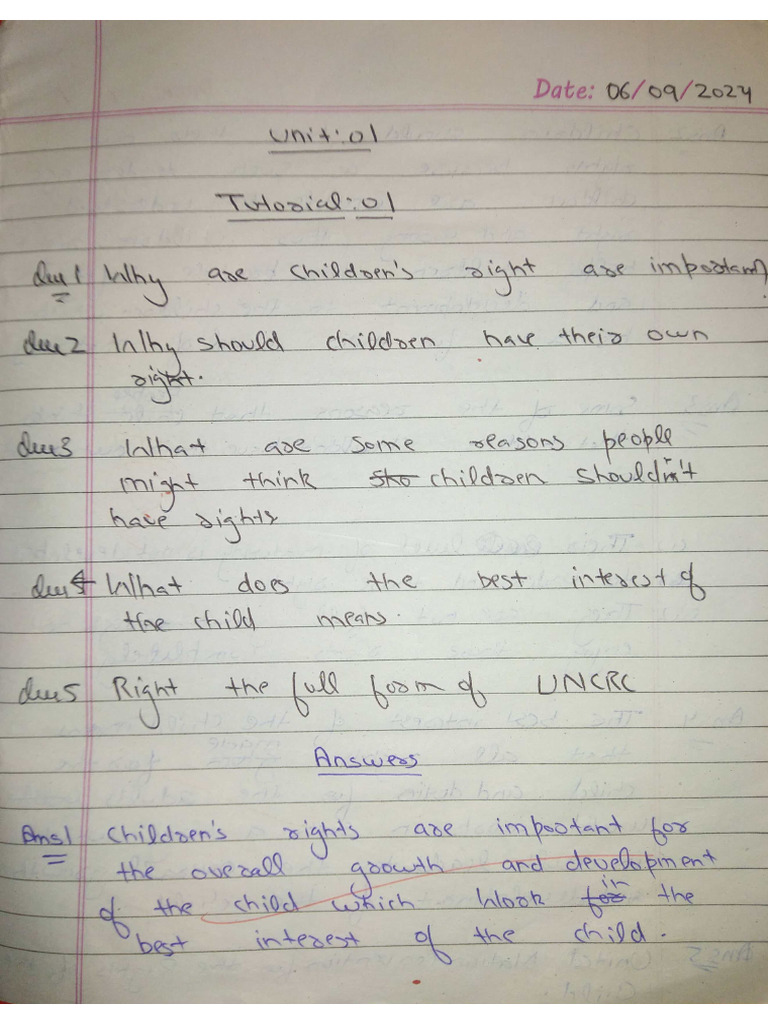 Date: 06/09/2024
Unit:01
Tutorial:01
Que 1 Why are children's right are important
Que 2 Why should children have their own
right.
Que 3 What are some reasons people
might think children shouldn't
have rights
Que 4 What does the best interest of
the child means.
Que 5 Right the full form of UNCRC
Answers
Ans 1 Children's rights are important for
the overall growth and development
of the child which work in the
best interest of the child.